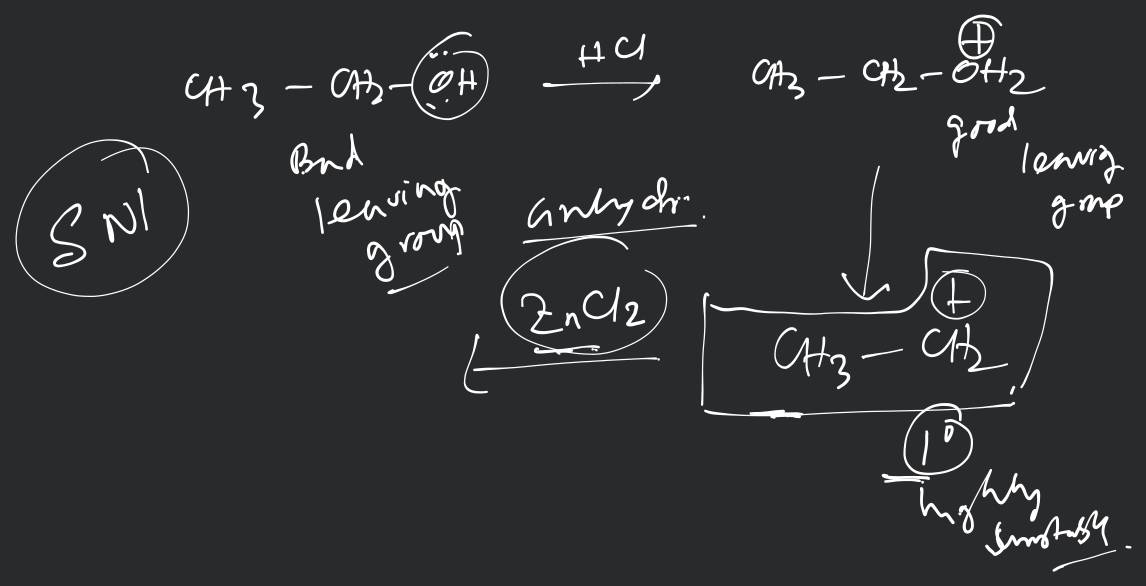 CH3 – CH2 – ÖH HCl CH3 – CH2 – OH2 ⊕
Bad leaving group
good leaving group
SN1
anhydr.
ZnCl2
CH3 – CH2 +
1°
highly unstable.